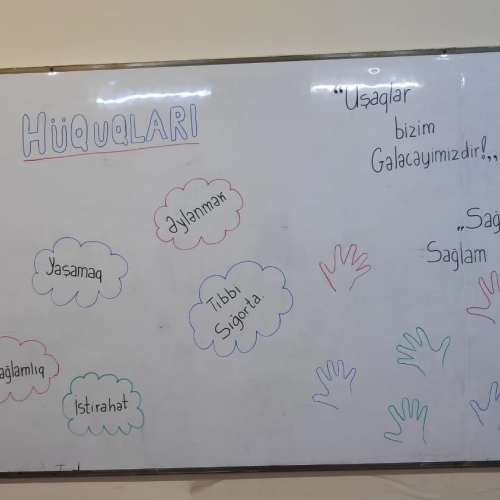 HÜQUQLARI
"Uşaqlar
bizim
Gələcəyimizdir!,,
əylənmək
Yaşamaq
Tibbi
Sığorta.
ağlamlıq
istirahət
,,Sağ
Sağlam